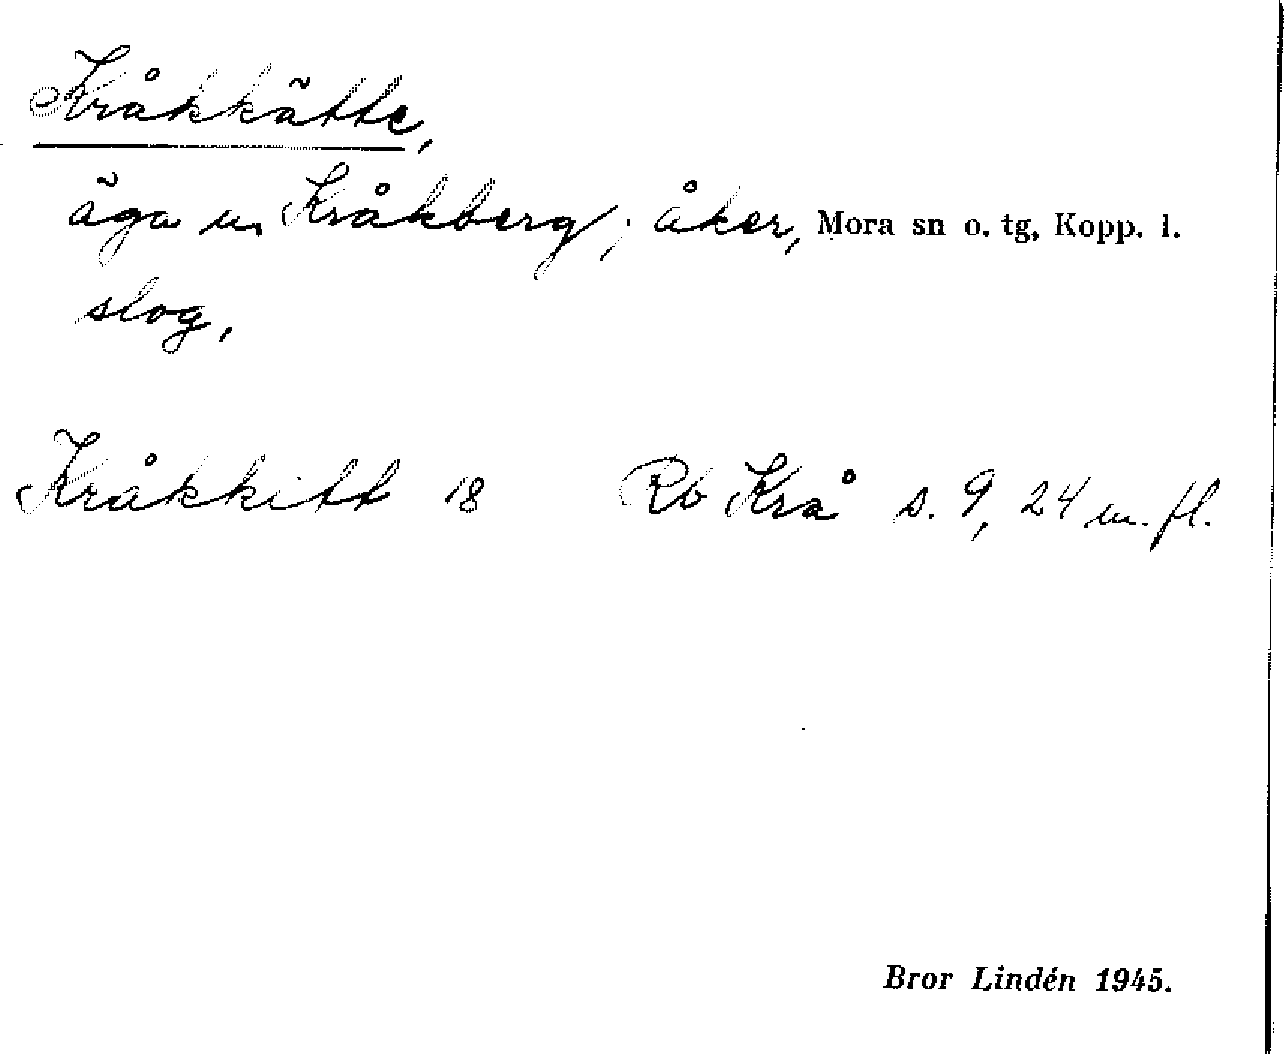 Kråkkätte,
äga u. Kråkberg; åker, Mora sn o. tg, Kopp. l.
slog,
Kråkkitt 18 Rb Krå s. 9, 24 m. fl.
Bror Lindén 1945.